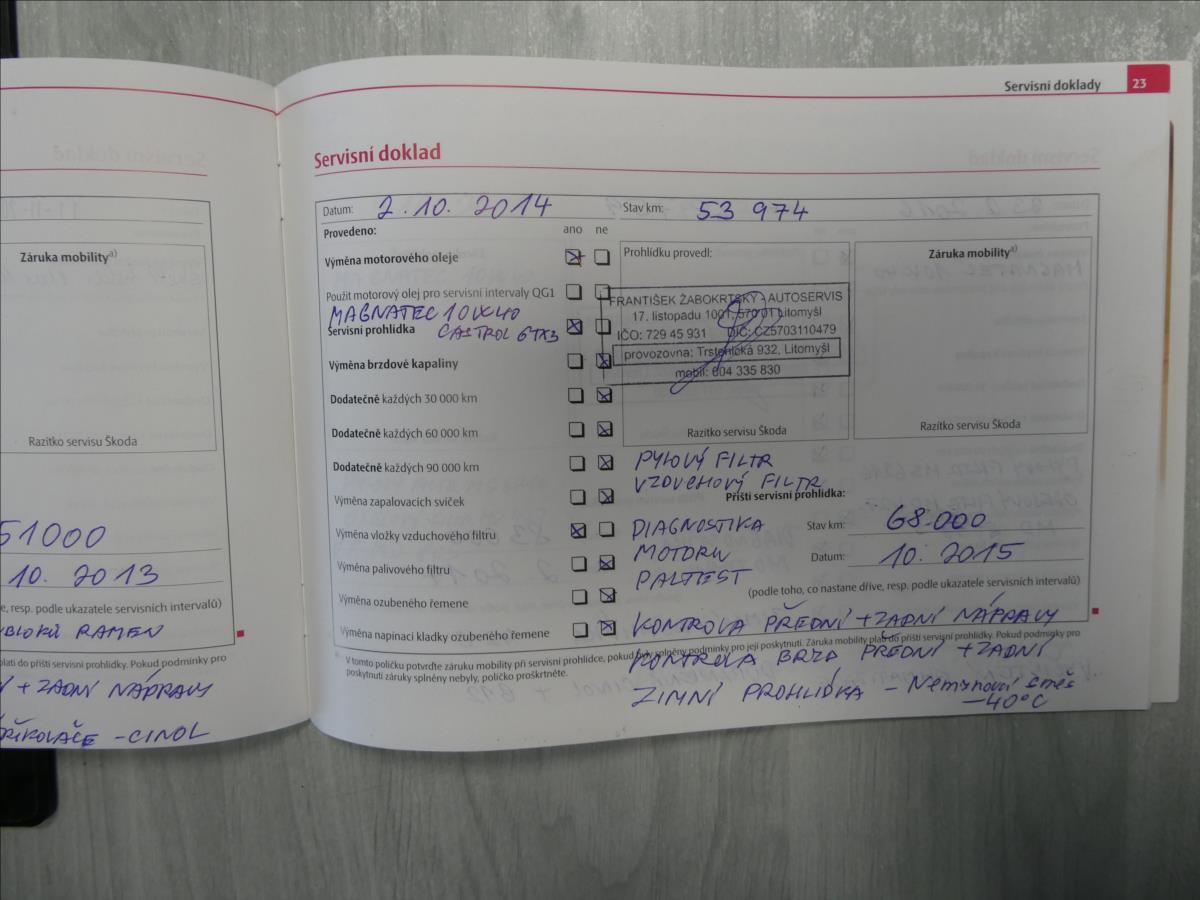 Servisní doklady 23
Záruka mobility a)
Razítko servisu Škoda
51000
10. 2013
e, resp. podle ukazatele servisních intervalů)
RAMEN
platí do příští servisní prohlídky. Pokud podmínky pro
+ ZADNÍ NÁPRAVY
- CINOL
Servisní doklad
Datum: 2.10. 2014 Stav km: 53 974
Provedeno: ano ne
Výměna motorového oleje
Použit motorový olej pro servisní intervaly QG1
MAGNATEC 10W40
Servisní prohlídka CASTROL GTX3
Výměna brzdové kapaliny
Dodatečně každých 30 000 km
Dodatečně každých 60 000 km
Dodatečně každých 90 000 km
Výměna zapalovacích svíček
Výměna vložky vzduchového filtru
Výměna palivového filtru
Výměna ozubeného řemene
Výměna napínací kladky ozubeného řemene
Prohlídku provedl:
FRANTIŠEK ŽABOKRTSKÝ - AUTOSERVIS
17. listopadu 1001, 570 01 Litomyšl
IČO: 729 45 931 DIČ: CZ5703110479
provozovna: Trstěnická 932, Litomyšl
mobil: 604 335 830
Razítko servisu Škoda
Záruka mobility a)
Razítko servisu Škoda
PYLOVÝ FILTR
VZDUCHOVÝ FILTR
Příští servisní prohlídka:
DIAGNOSTIKA
MOTORU
PALTEST
Stav km: 68.000
Datum: 10. 2015
(podle toho, co nastane dříve, resp. podle ukazatele servisních intervalů)
KONTROLA PŘEDNÍ + ZADNÍ NÁPRAVY
a) V tomto políčku potvrďte záruku mobility při servisní prohlídce, pokud byly splněny podmínky pro její poskytnutí. Záruka mobility platí do příští servisní prohlídky. Pokud podmínky pro
poskytnutí záruky splněny nebyly, políčko proškrtněte.
KONTROLA BRZD PŘEDNÍ + ZADNÍ
ZIMNÍ PROHLÍDKA - Nemrznoucí směs
-40°C